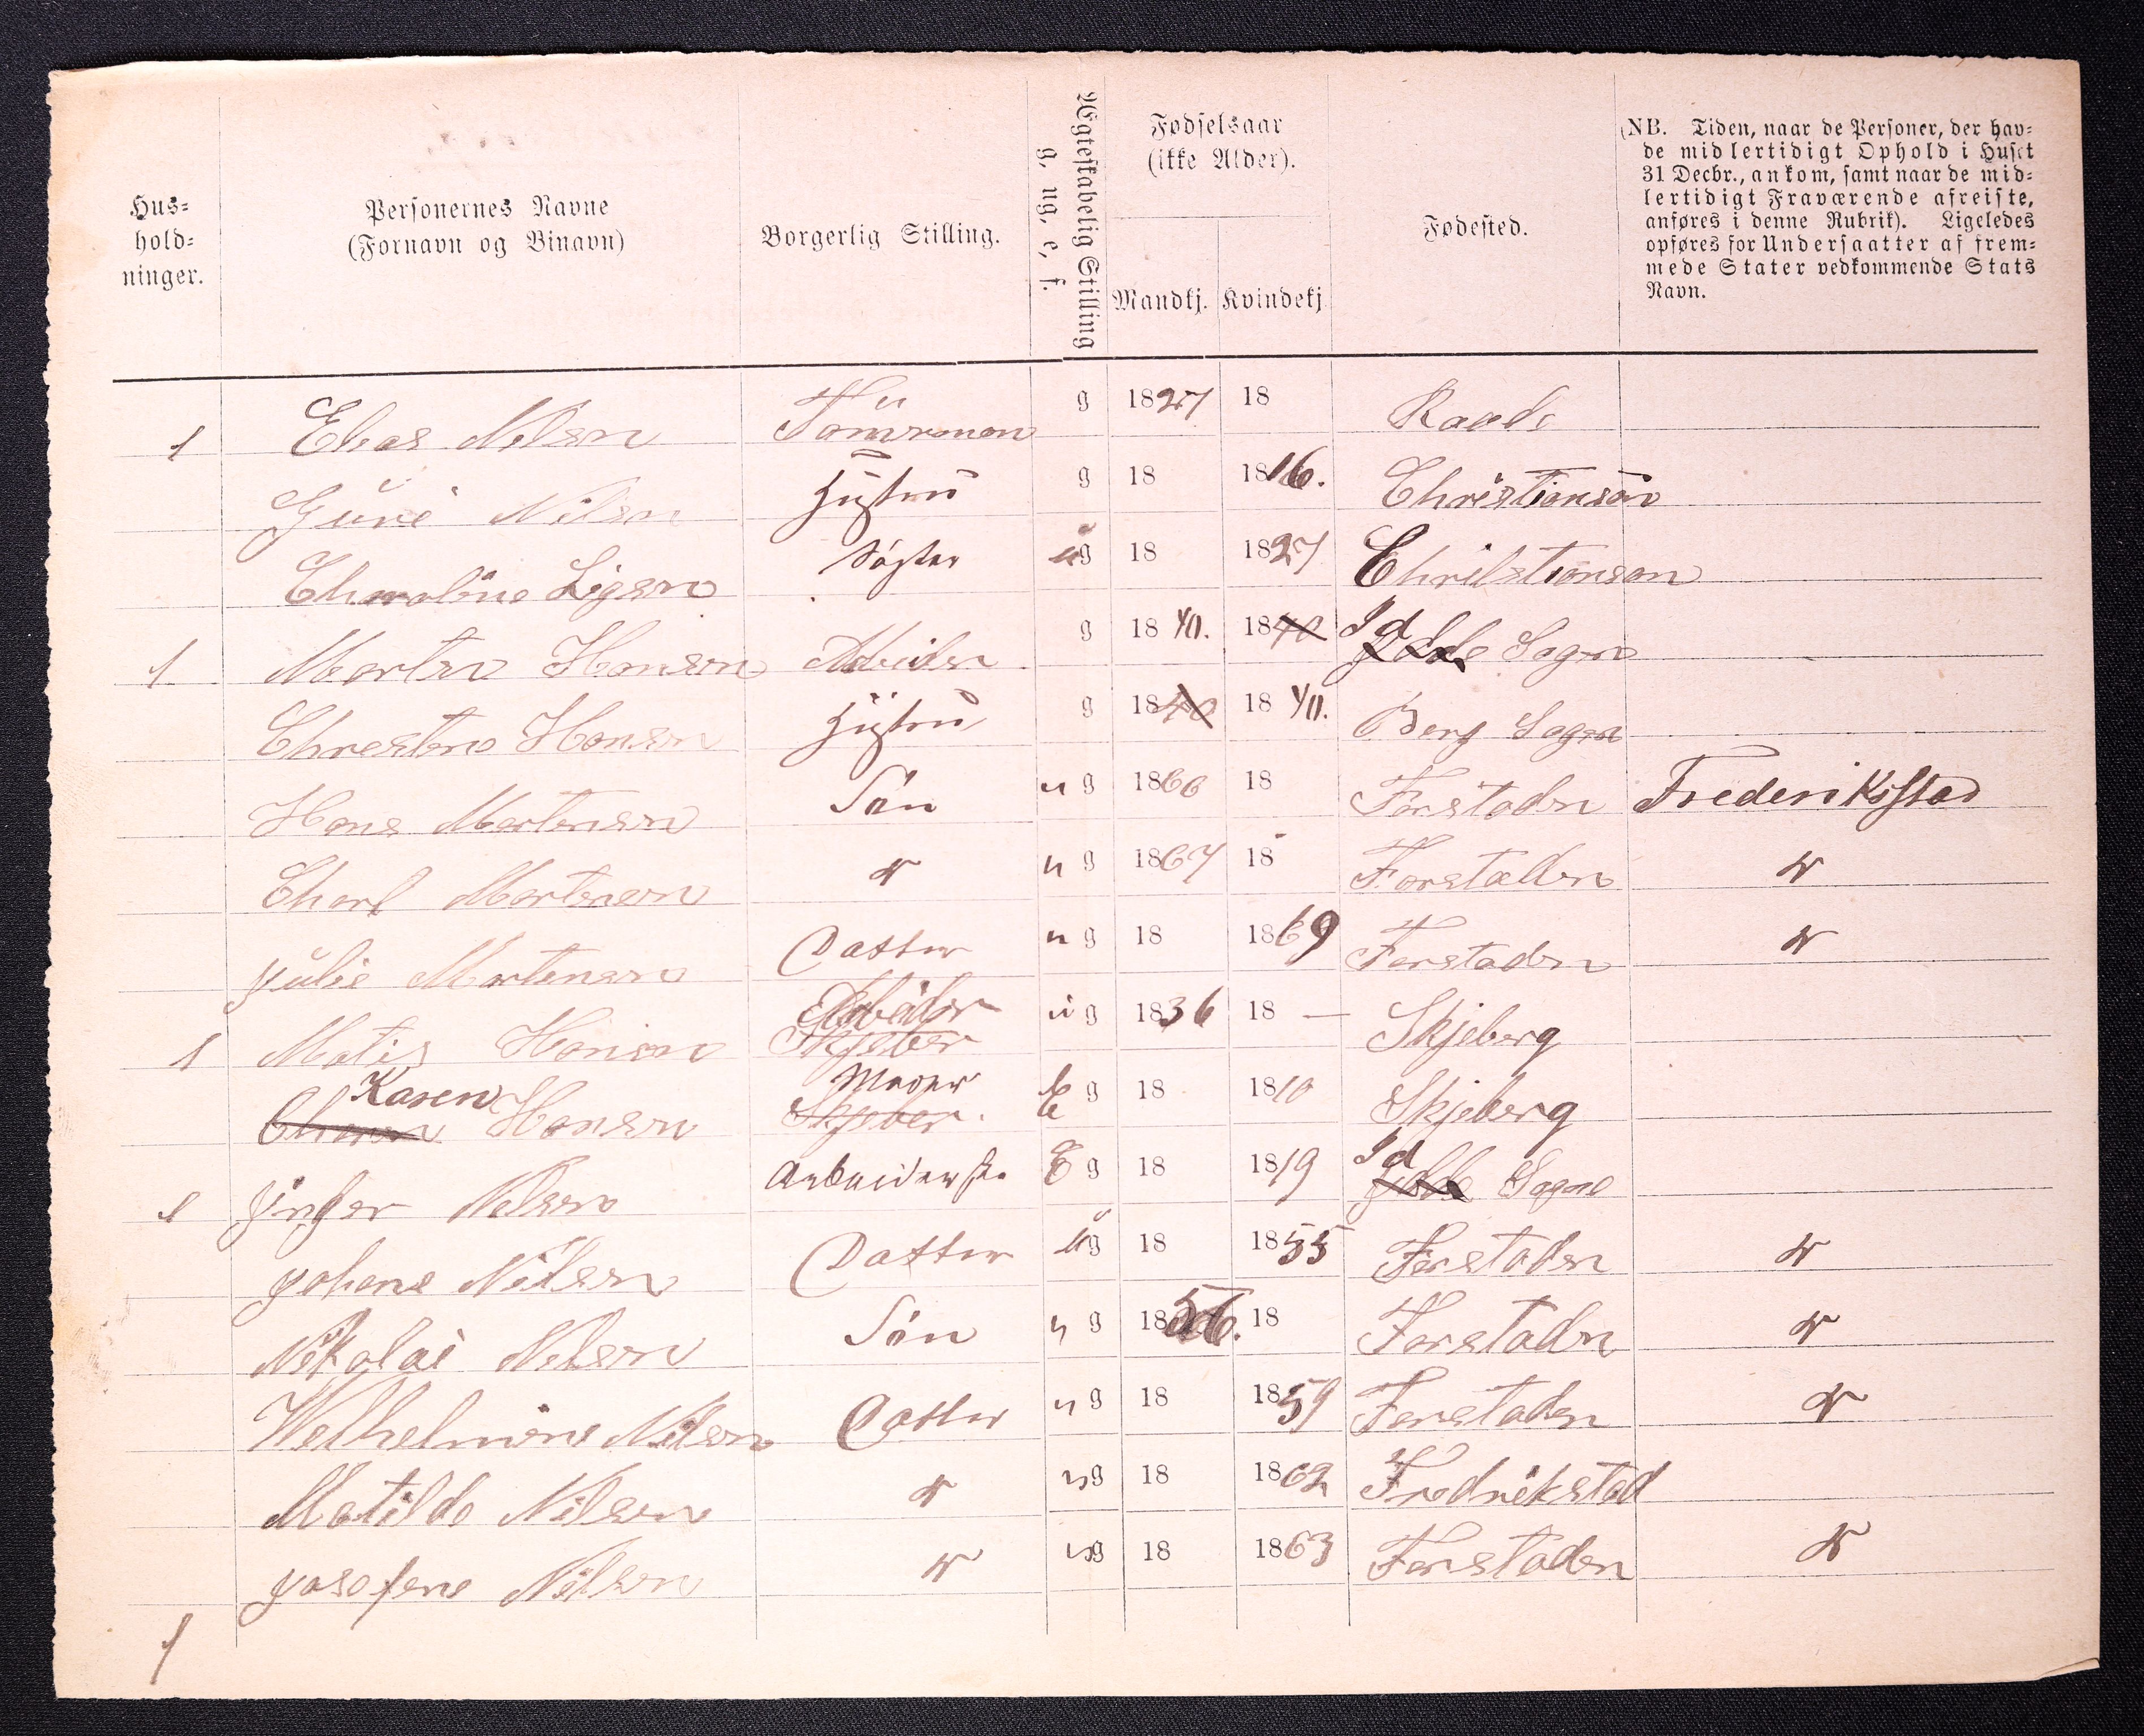 Hus-
hold-
ninger.
Personernes Navne
(Fornavn og Binavn)
Borgerlig Stilling.
Ægteskabelig Stilling
g, ug, e, f.
Fødselsaar
(ikke Alder).
Mandkj. Kvindekj
Fødested.
(NB. Tiden, naar de Personer, der hav-
de midlertidigt Ophold i Huset
31 Decbr., ankom, samt naar de mid-
lertidigt Fraværende afreiste,
anføres i denne Rubrik). Ligeledes
opføres for Undersaatter af frem-
mede Stater vedkommende Stats
Navn.
1 Elias Nilsen Tömrman g 1827 18 Raade
Guri Nilsen Hustru g 18 1816. Christiansön
Söster ug 18 1827 Christianson
1 Martin Hansen Arbeider g 18 40. 1840 Id Sogn
Christine Hansen Hustru g 1840 18 40. Berg Sogn
Hans Martensen Sön u g 1866 18 Forstaden Frederikstad
Charl Martensen " u g 1867 18 Forstaden "
Julie Martensen Datter u g 18 1869 Forstaden "
1 Matis Hansen Arbeider ug 1836 18 — Skjeberg
Karen Hansen Moder E g 18 1810 Skjeberg
1 Jinger Nilsen Arbeiderske E g 18 1819 Id Sogne
Johane Nilsen Datter ug 18 1855 Forstaden "
Nikolai Nilsen Sön u g 1856. 18 Forstadn "
Welhelmine Nilsen Datter u g 18 1859 Forstaden "
Matilde Nilsen " ug 18 1862 Fredrikstad
Josefene Nilsen " ug 18 1863 Forstaden "
1